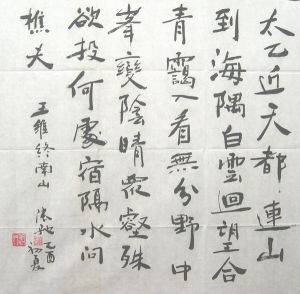 太乙近天都連山
到海隅白雲迴望合
青靄入看無分野中
峯變陰晴衆壑殊
欲投何處宿隔水問
樵夫
王維終南山
乙酉
初夏